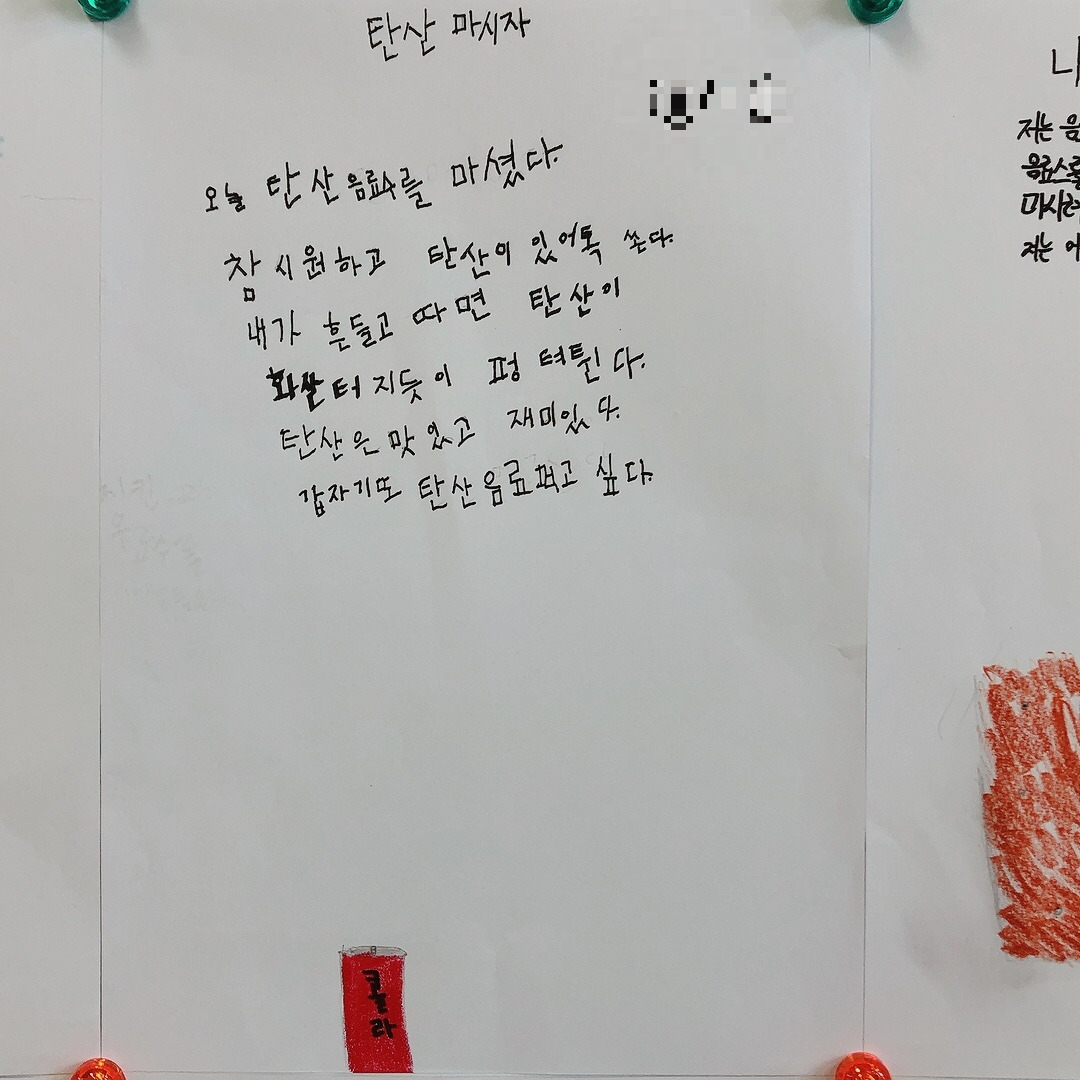 탄산 마시자
오늘 탄산음료수를 마셨다.
참 시원하고 탄산이 있어톡 쏜다.
내가 흔들고 따면 탄산이
화살터지듯이 펑 터튄다.
탄산은 맛있고 재미있다.
갑자기또 탄산음료먹고 싶다.
콜라
저는 음
음료스를
마시러
저는 어